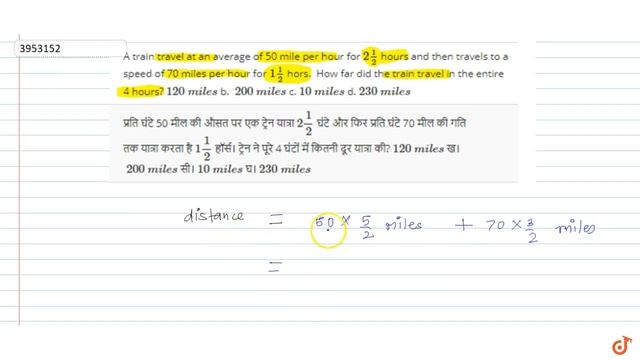 3953152
A train travel at an average of 50 mile per hour for 2 1/2 hours and then travels to a
speed of 70 miles per hour for 1 1/2 hors. How far did the train travel in the entire
4 hours? 120 miles b. 200 miles c. 10 miles d. 230 miles
प्रति घंटे 50 मील की औसत पर एक ट्रेन यात्रा 2 1/2 घंटे और फिर प्रति घंटे 70 मील की गति
तक यात्रा करता है 1 1/2 हॉर्स। ट्रेन ने पूरे 4 घंटों में कितनी दूर यात्रा की? 120 miles ख।
200 miles सी। 10 miles घ। 230 miles
distance = 50 × 5/2 miles + 70 × 3/2 miles
=